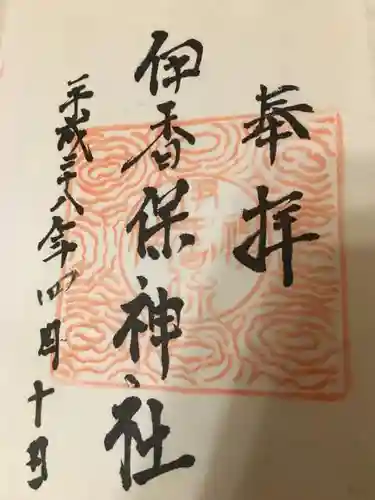 奉拝
伊香保神社
平成二十八年四月十日